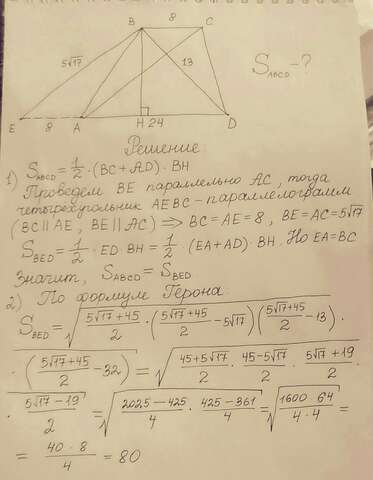 B 8 C
5√17 13 S_ABCD - ?
E 8 A H 24 D
Решение.
1) S_ABCD = 1/2 · (BC + AD) · BH
Проведем BE параллельно AC, тогда
четырехугольник AEBC - параллелограмм
(BC || AE, BE || AC) ⇒ BC = AE = 8, BE = AC = 5√17
S_BED = 1/2 · ED · BH = 1/2 · (EA + AD) · BH. Но EA = BC
Значит, S_ABCD = S_BED
2) По формуле Герона:
S_BED = √((5√17+45)/2 · ((5√17+45)/2 - 5√17) ((5√17+45)/2 - 13) ·
· ((5√17+45)/2 - 32)) = √((45+5√17)/2 · (45-5√17)/2 · (5√17+19)/2 ·
· (5√17-19)/2) = √((2025-425)/4 · (425-361)/4) = √((1600 64)/(4·4)) =
= (40 · 8)/4 = 80